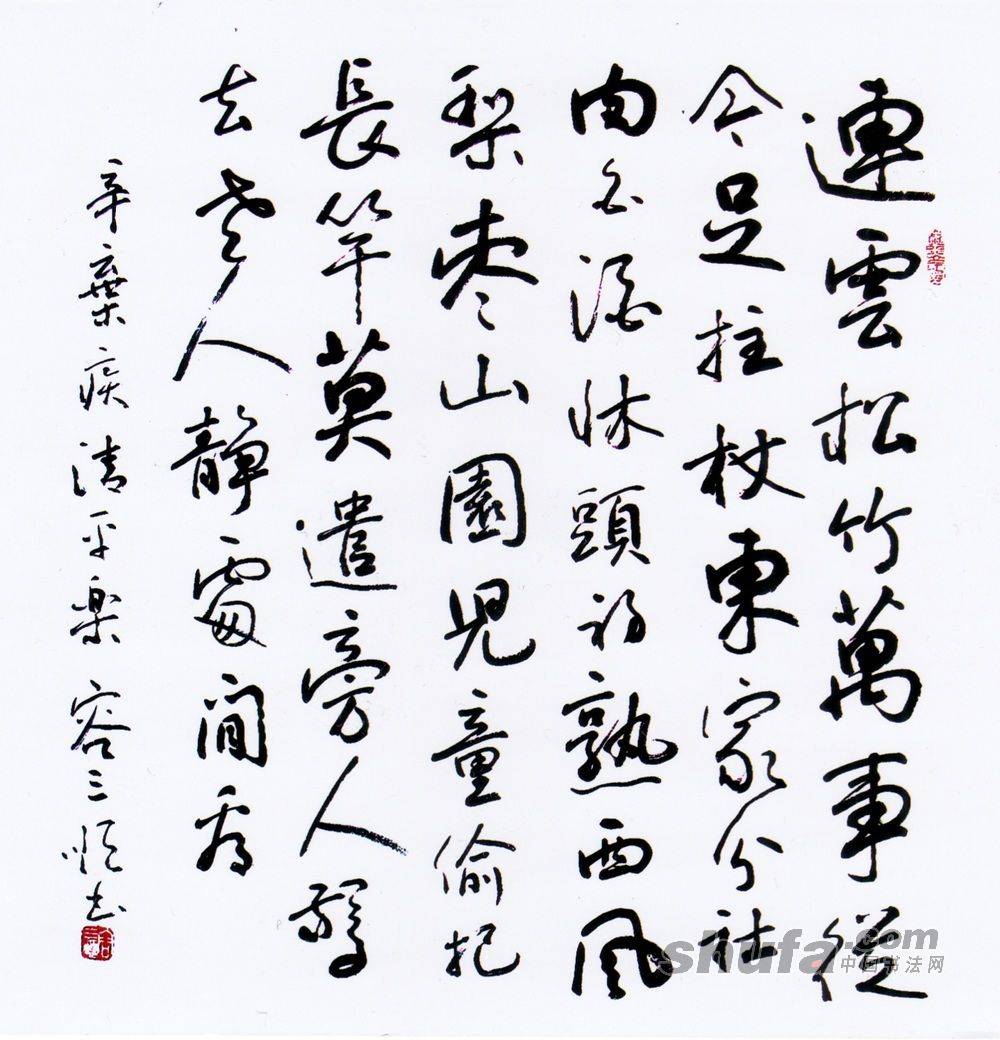 連雲松竹萬事從
今足拄杖東家分社
肉白酒牀頭初熟西風
梨枣山園児童偷把
長竿莫遣旁人驚
去老人靜處閒看
辛棄疾清平楽 容三书
shufa.com
中国书法网